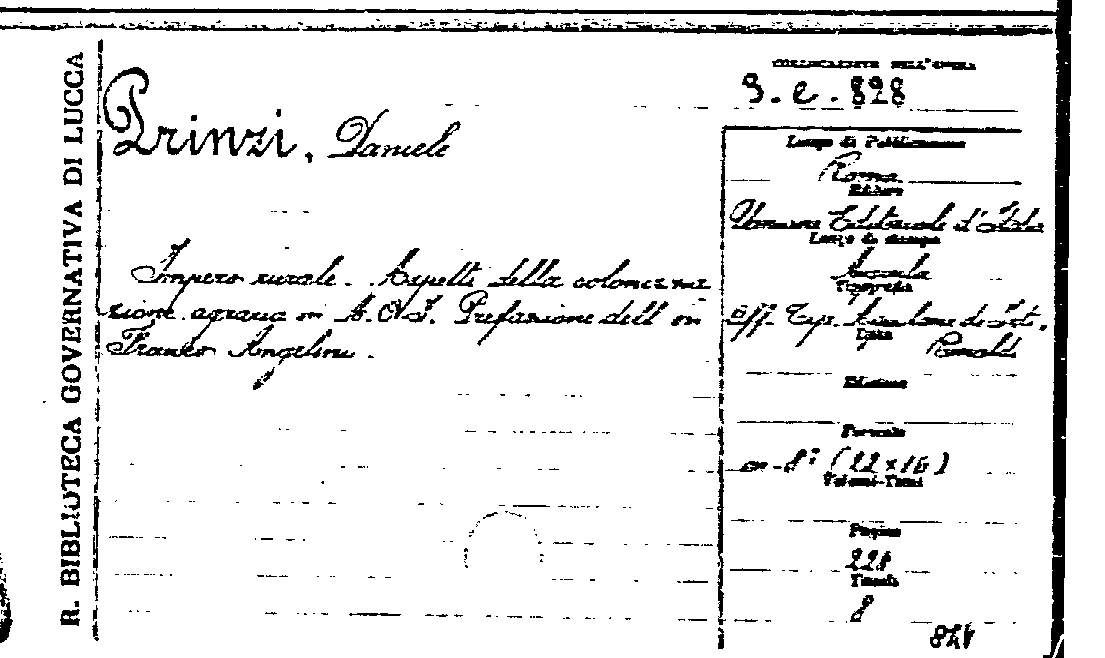 R. BIBLIOTECA GOVERNATIVA DI LUCCA
Prinzi, Daniele
Impero rurale. Aspetti della colonizza
zione agraria in A.O.I. Prefazione dell'on
Franco Angelini.
COLLOCAZIONE DELL'OPERA
9.e.828
Luogo di Pubblicazione
Roma
Editore
Unione Editoriale d'Italia
Luogo di stampa
Tipografia
Off. Tip.
Data
Edizione
Formato
in-8° (22×16)
Volumi-Tomi
Pagine
221
Tavole
8